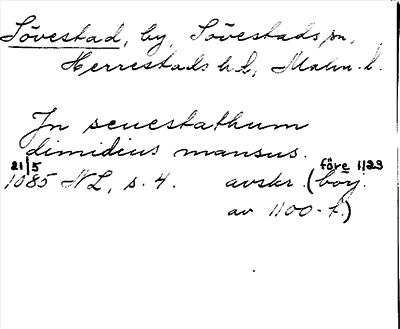 Sövestad, by, Sövestads sn,
Herrestads hd, Malm. l.
Jn seuestathum
dimidius mansus.
21/5 1085 NL, s. 4. avskr. (före 1123 börj.
av 1100-t.)